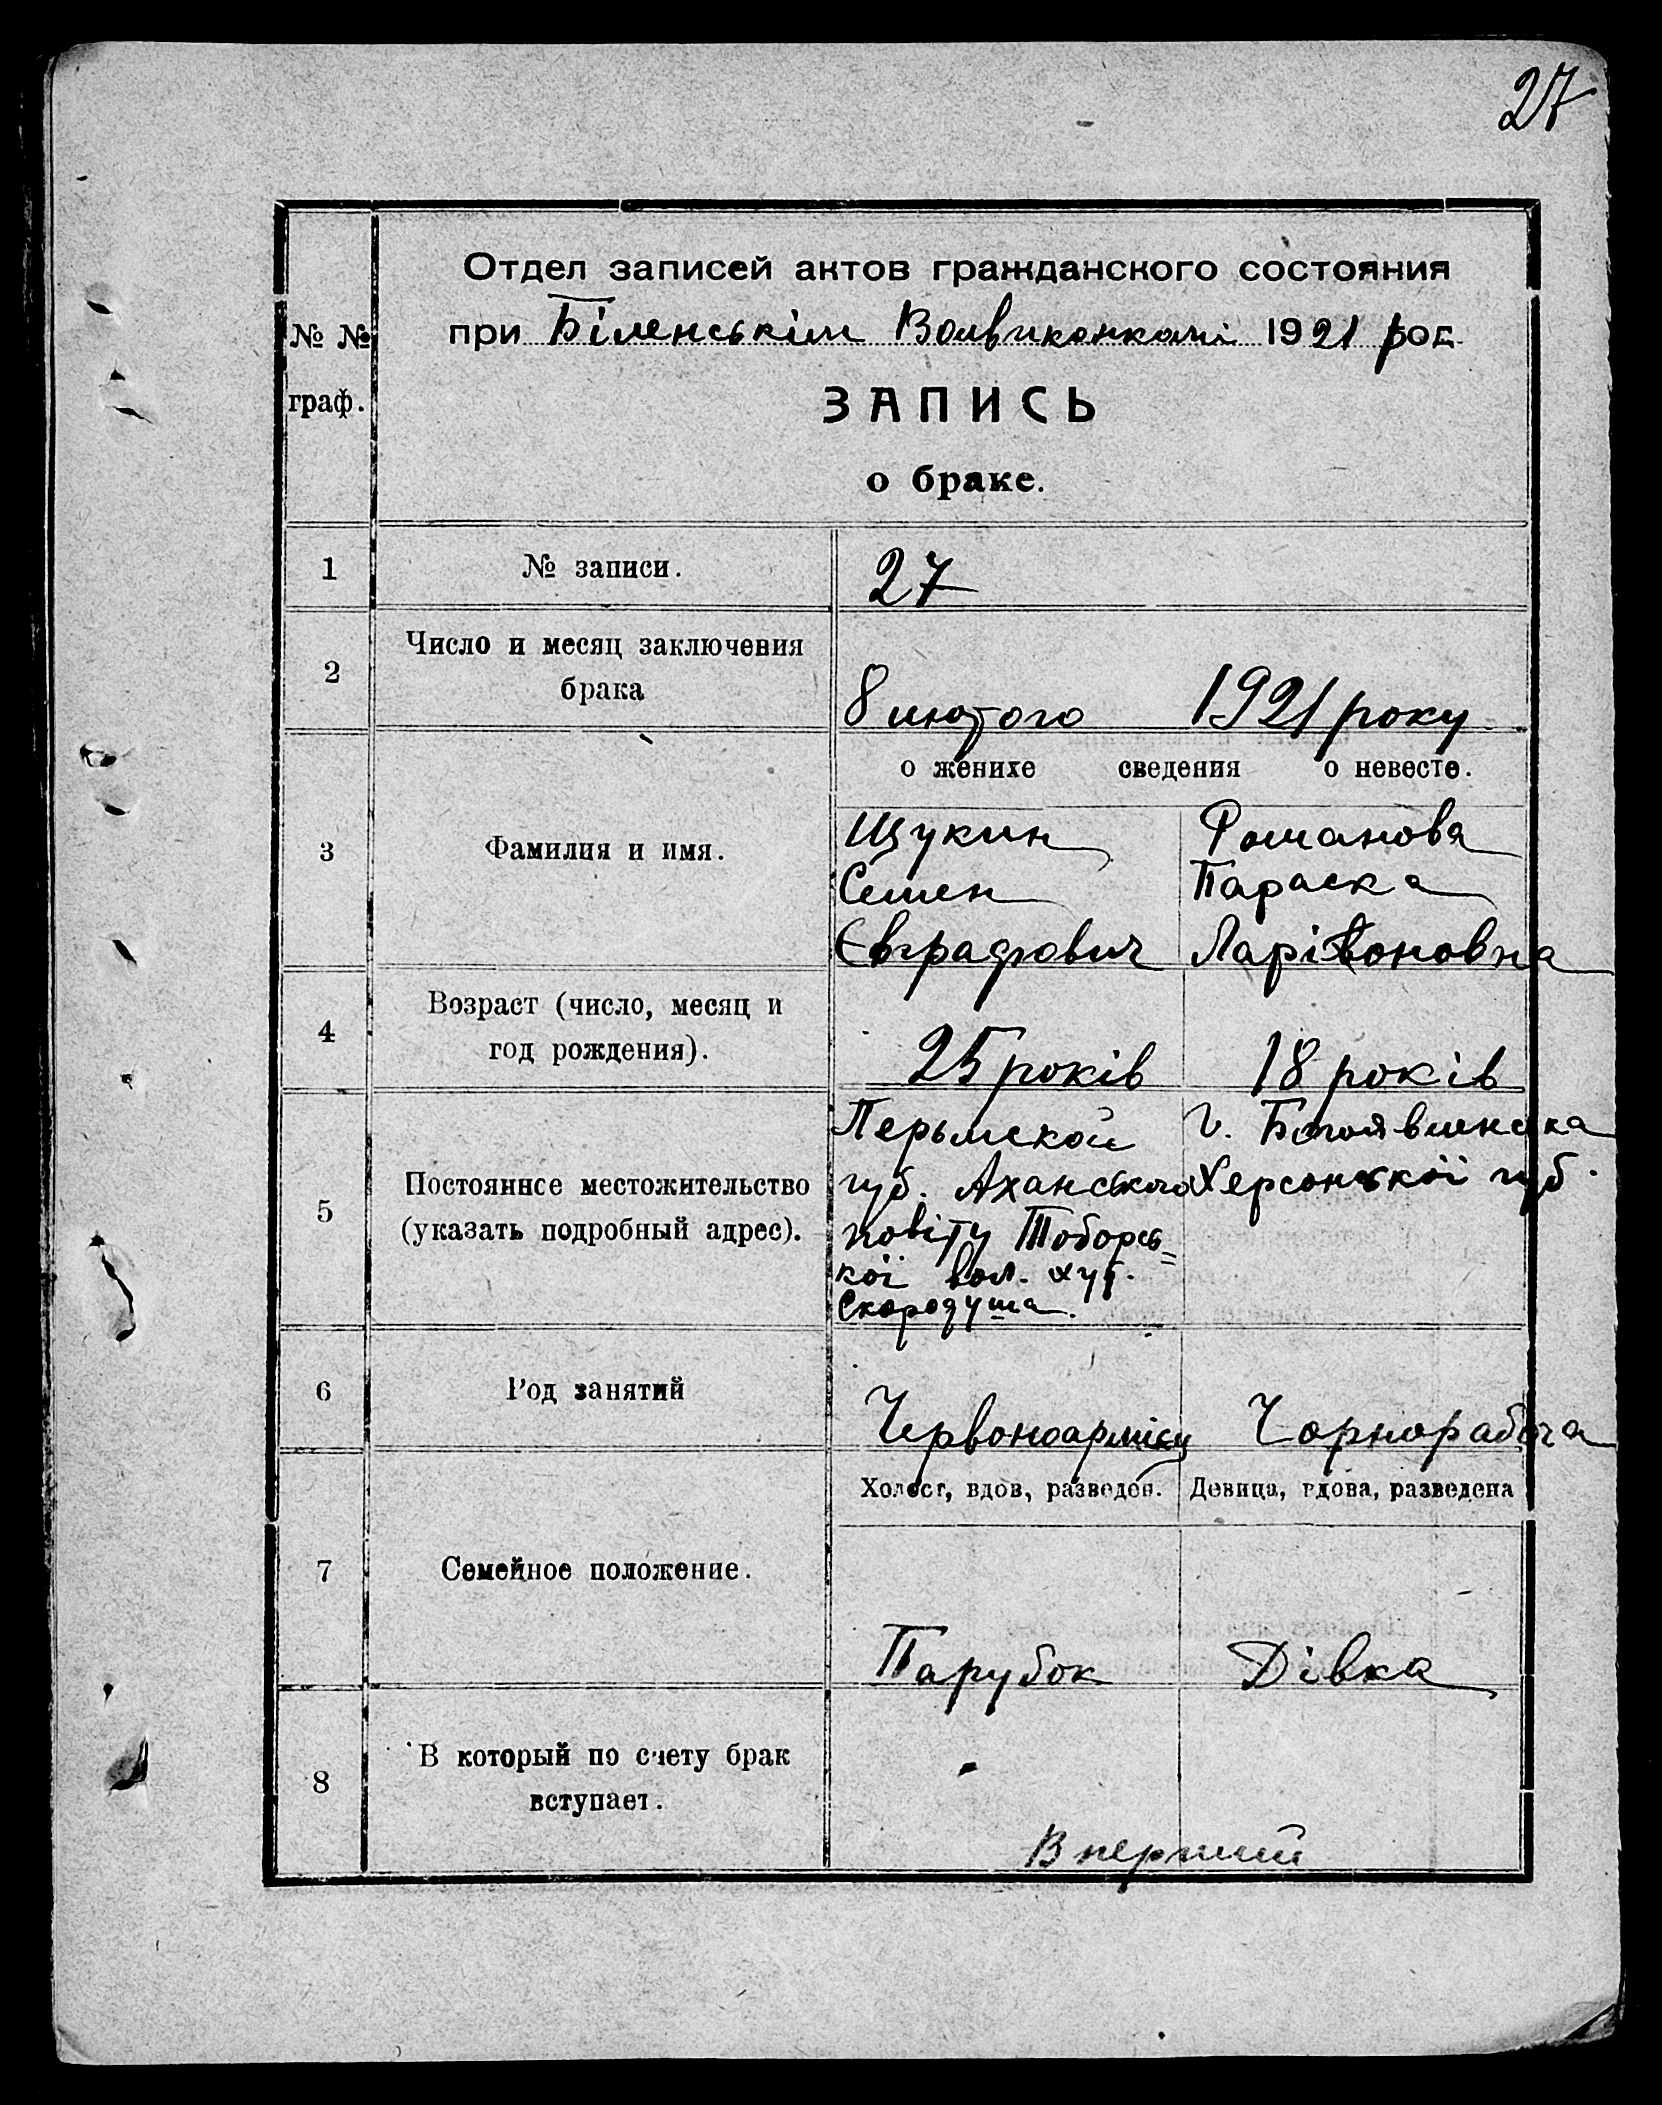 27
№ №
граф.
Отдел записей актов гражданского состояния
при Біленськім Волвиконкомі 1921 год.
ЗАПИСЬ
о браке.
1
№ записи.
27
2
Число и месяц заключения
брака
8 лютого 1921 року
о женихе сведения о невесте.
3
Фамилия и имя.
Щукин
Семен
Євграфович
Романова
Параска
Ларівоновна
4
Возраст (число, месяц и
год рождения).
25 років
18 років
5
Постоянное местожительство
(указать подробный адрес).
Перьмской
губ. Аханського
повіту Таборсь=
кої вол. хут.
Скородума.
г. Богоявленска
Херсонської губ.
6
Род занятий
Червоноармієц
Чорнорабоча
7
Семейное положение.
Холост, вдов, разведен.
Девица, вдова, разведена
Парубок
Дівка
8
В который по счету брак
вступает.
В перший